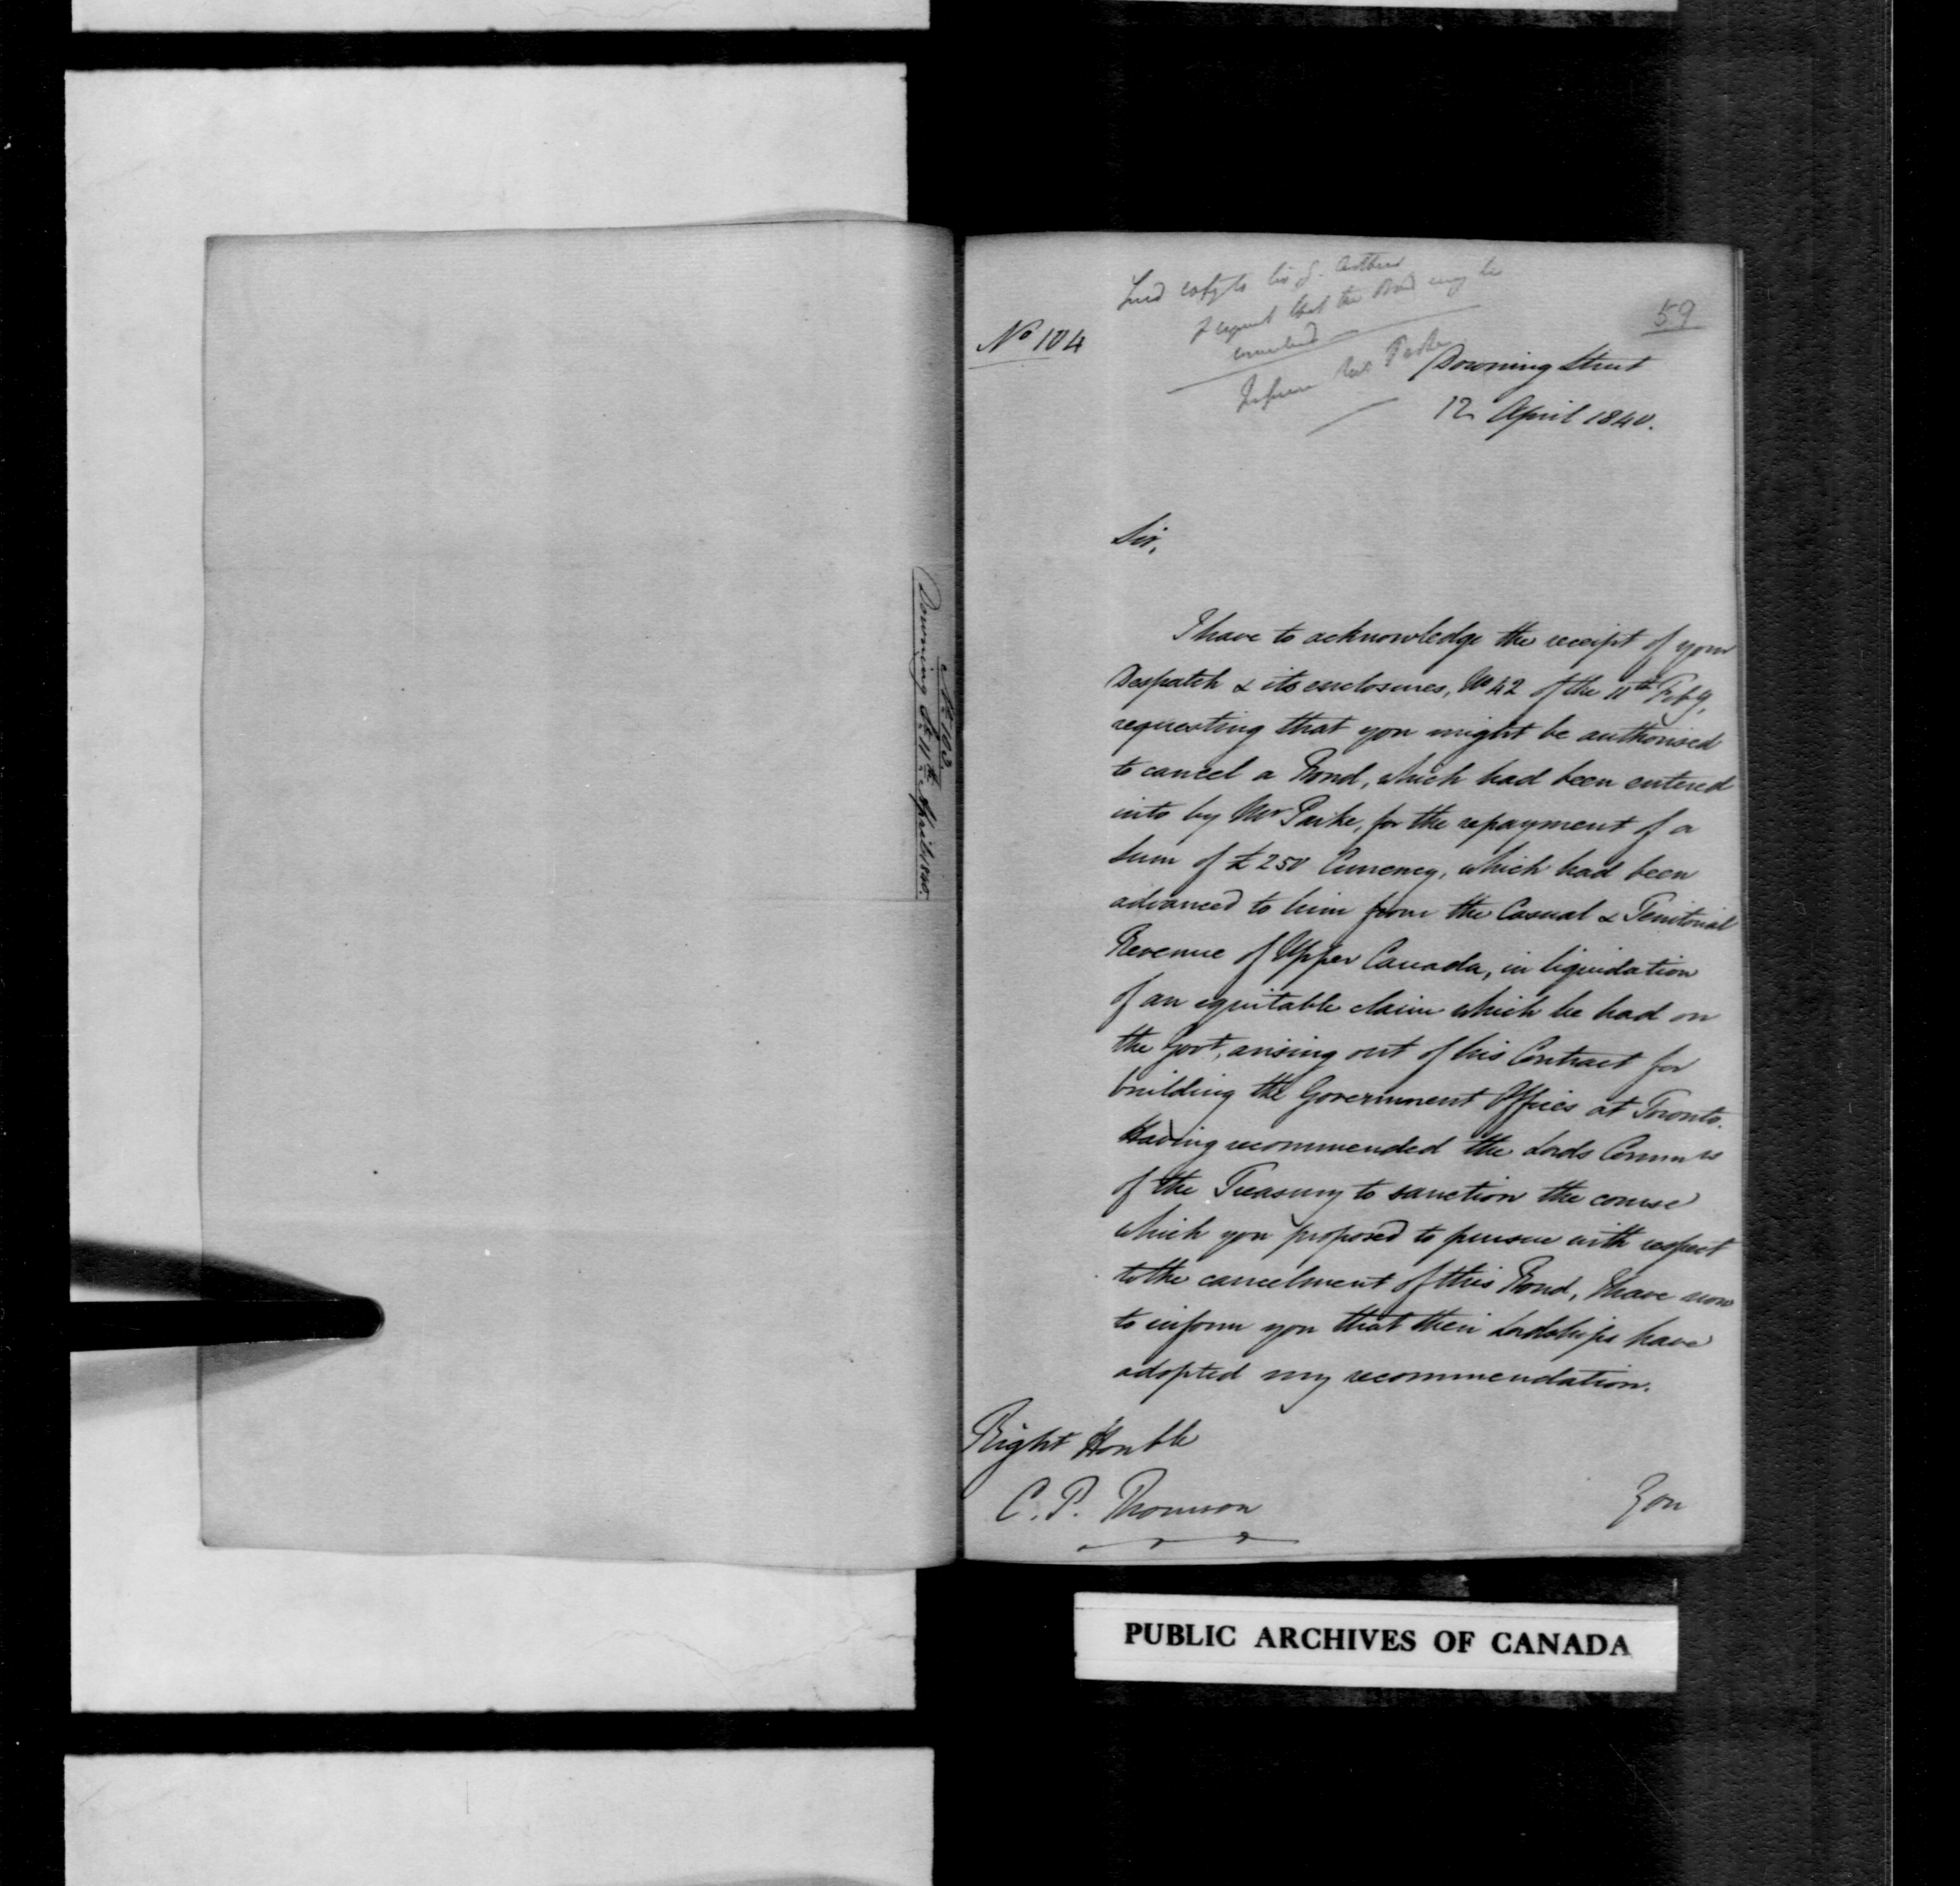 No 103
Downing St. 11th April 1840
Send copy to Sir G. Arthur
& request that the Bond may be
cancelled
Inform Mr Parke
59
No 104
Downing Street
12 April 1840.
Sir,
I have to acknowledge the receipt of your
Despatch & its enclosures, No 42 of the 11th Feby,
requesting that you might be authorised
to cancel a Bond, which had been entered
into by Mr Parke, for the repayment of a
sum of £250 Currency, which had been
advanced to him from the Casual & Territorial
Revenue of Upper Canada, in liquidation
of an equitable claim which he had on
the Govt, arising out of his Contract for
building the Government Offices at Toronto.
Having recommended the Lords Commrs
of the Treasury to sanction the course
which you proposed to pursue with respect
to the cancelment of this Bond, I have now
to inform you that their Lordships have
adopted my recommendation.
Right Honble
C. P. Thomson
You
PUBLIC ARCHIVES OF CANADA